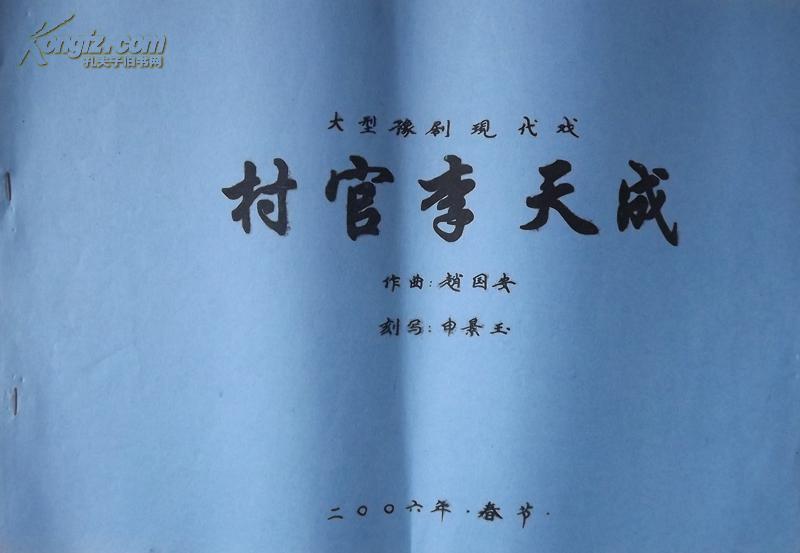 Kongfz.com
孔夫子旧书网
大型豫剧現代戏
村官李天成
作曲:趙国安
刻写:申景玉
二〇〇六年·春节·